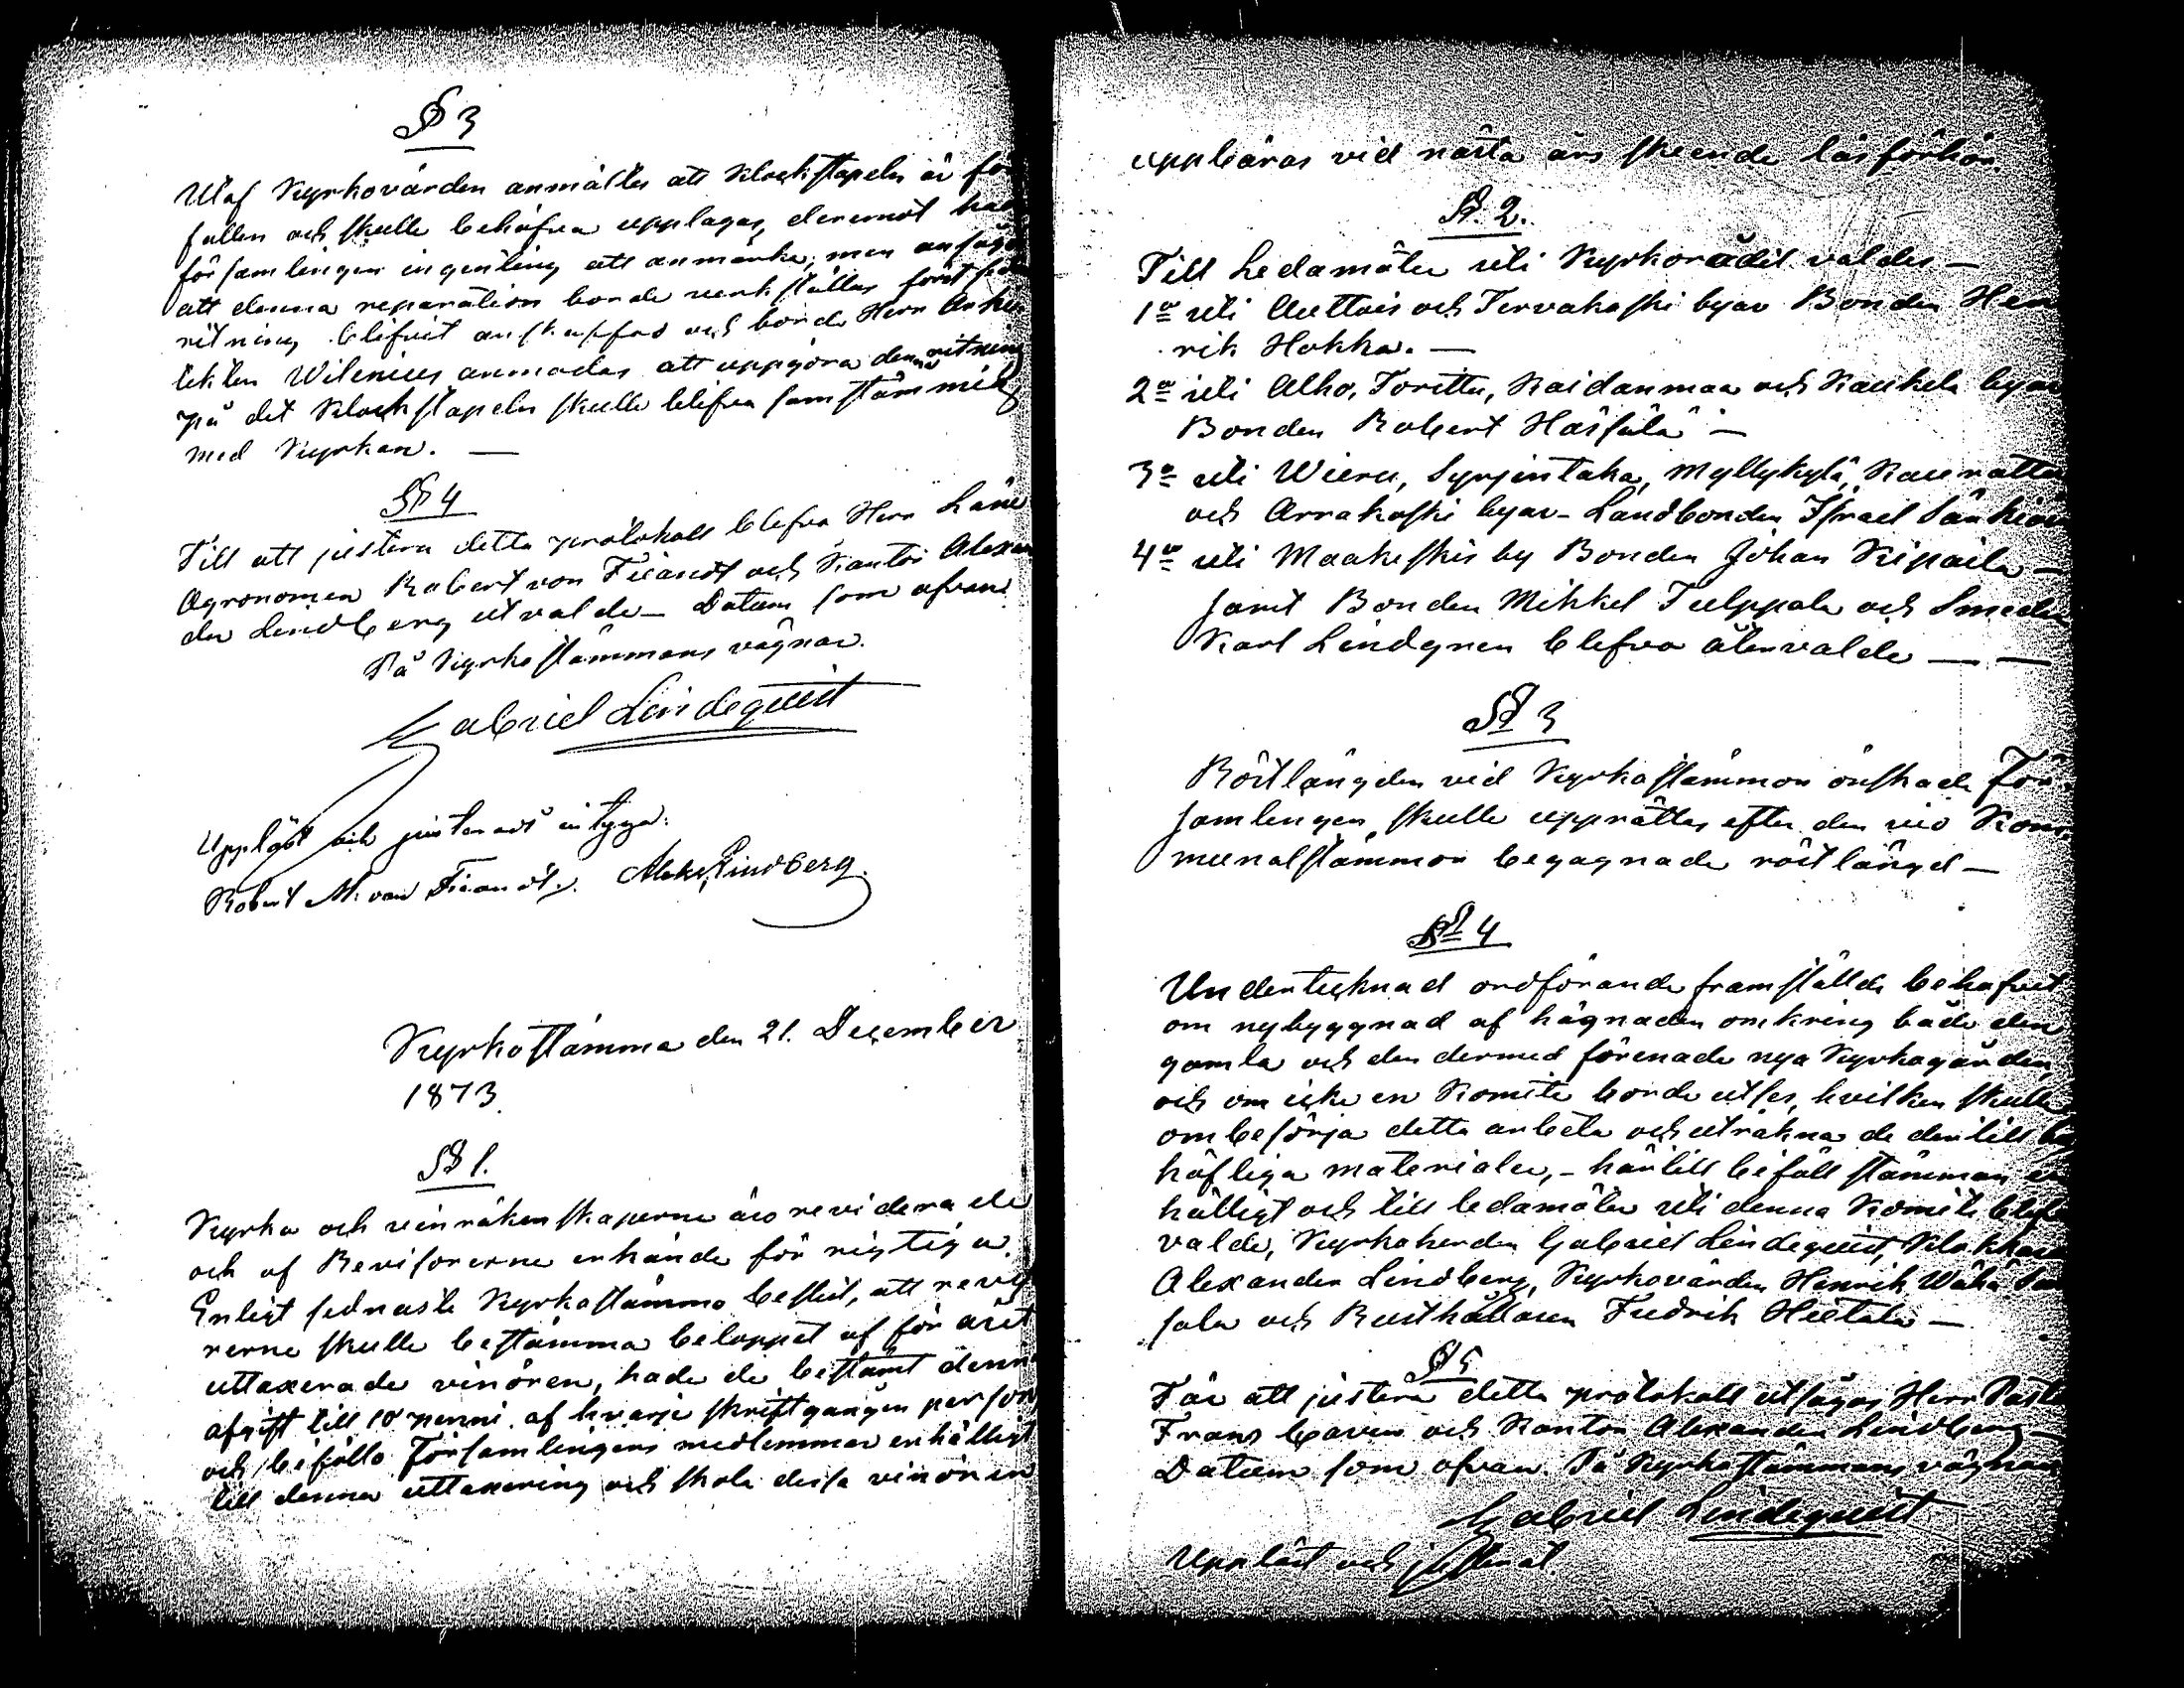 § 3
Utaf Kyrkovärden anmältes att Klockstapeln är för
fallen och skulle behöfva upplagas, deremot had
församlingen ingenting att anmärka, men ansågo
att denna reparation borde verkställas först sed
ritning blifvit anskaffad och borde Herr Arki
tekten Wilenius anmodas att uppgöra denna ritning
på det Klockstapeln skulle blifva samstämmig
med Kyrkan. —
§ 4
Till att justera detta protokoll blefvo Herr Läne
Agronomen Robert von Fieandt och Kantor Alexan
der Lindberg utvalde — Datum som ofvan
På Kyrkostämmans vägnar.
Gabriel Lindequist
Uppläst och justeradt intyga:
Robert M. von Fieandt. Aleks. Lindberg.
Kyrkostämma den 21. December
1873.
§ 1.
Kyrko och vinräkenskaperne äro reviderade
och af Revisorerne erkände för rigtiga.
Enligt sednaste Kyrkostämmo beslut, att revis
rerne skulle bestämma beloppet af för året
uttaxerade vinören, hade de bestämt denna
afgift till 10 penni af hvarje skriftgången person
och biföllo Församlingens medlemmar enhälligt
till denna uttaxering och skola dessa vinören
uppbäras vid nästa års skeende läsförhör.
§. 2.
Till Ledamöter uti Kyrkorådit valdes —
1o uti Auttois och Tervakoski byar Bonden Hen
rik Hokka. —
2o uti Alho, Torittu, Kaidanmaa och Kaukela byar
Bonden Robert Hässälä —
3o uti Wieru, Syrjintaka, Myllykylä, Kauratta
och Arrakoski byar – Landbonden Israel
4o uti Maakeskis by Bonden Johan Kipaila —
samt Bonden Mikkel Tulppala och Smeden
Karl Lindgren blefvo återvalde — —
§ 3
Röstlängden vid Kyrkostämmor önskade För
samlingen skulle upprättas efter den vid Kom
munalstämmor begagnade röstlängd —
§ 4
Undertecknad ordförande framställde behofvet
om nybyggnad af hägnaden omkring både den
gamla och den dermed förenade nya Kyrkogården,
och om icke en Komité borde utses, hvilken skulle
ombesörja detta arbete och uträkna de dertill be
höfliga materialer, – härtill biföll stämman en
hälligt och till ledamöter uti denna Komité blefvo
valde, Kyrkoherden Gabriel Lindequist, Klockaren
Alexander Lindberg, Kyrkovärden Henrik Wähä
sala och Rusthållaren Fredrik Hietala —
§ 5
För att justera detta protokoll utsågos Herr Pastor
Frans Caven och Kantor Alexander Lindberg —
Datum som ofvan. På Kyrkostämmans vägnar
Gabriel Lindequist
Uppläst och justerat